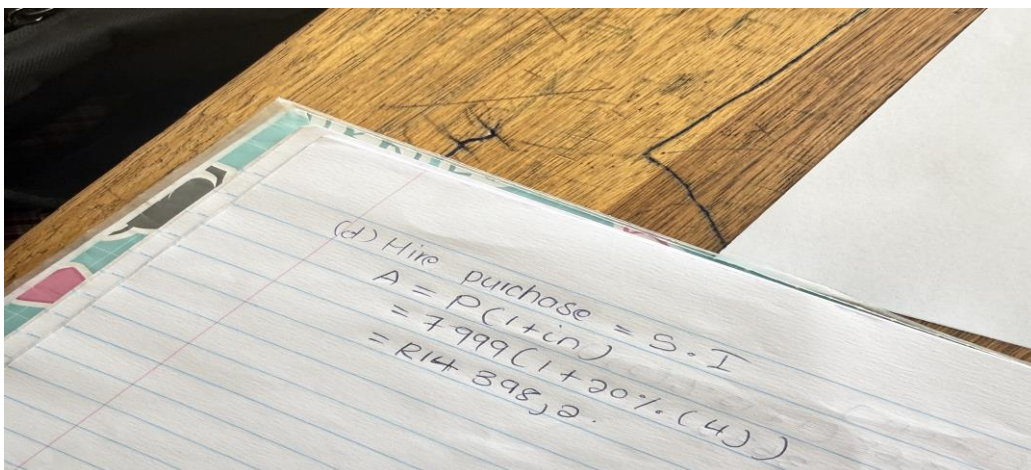 (d) Hire purchase = S.I
A = P(1+in)
= 7 999(1+20%(4))
= R14 398,2.